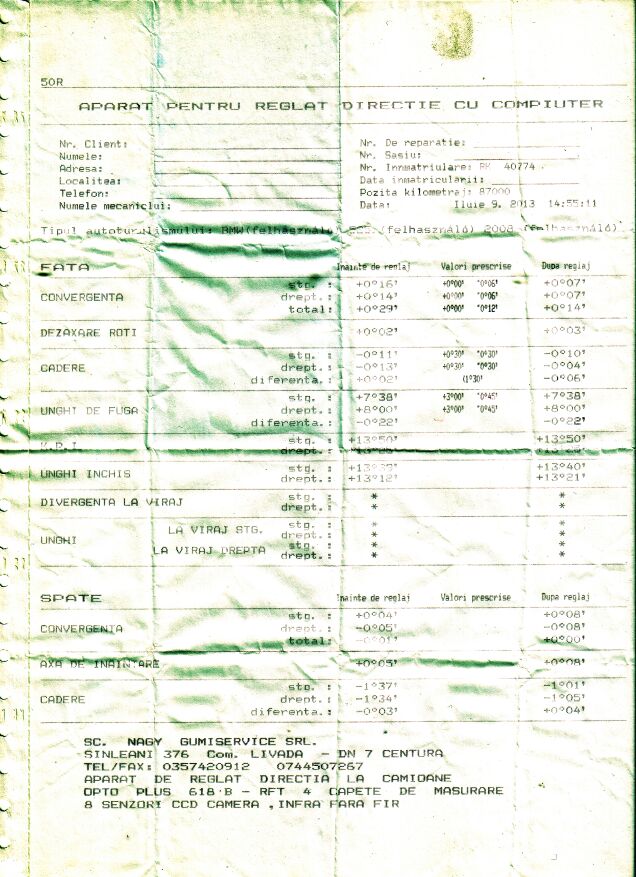 50R
APARAT PENTRU REGLAT DIRECTIE CU COMPIUTER
Nr. Client:
Numele:
Adresa:
Localitea:
Telefon:
Numele mecanicului:
Nr. De reparatie:
Nr. Sasiu:
Nr. Innmatriulare: BK 40774
Data inmatricularii:
Pozita kilometraj: 87000
Data: Iluie 9. 2013 14:55:11
Tipul autoturulismului: BMW(felhasználó (felhasználó) 2008 (felhasználó)
FATA Inainte de reglaj Valori prescrise Dupa reglaj
stg. : +0°16' +0°00' "0°06' +0°07'
CONVERGENTA drept.: +0°14' +0°00' "0°06' +0°07'
total: +0°29' +0°00' "0°12' +0°14'
DEZAXARE ROTI +0°02' +0°03'
stg. : -0°11' +0°30' "0°30' -0°10'
CADERE drept.: -0°13' +0°30' "0°30' -0°04'
diferenta.: +0°02' (1°30' -0°06'
stg. : +7°38' +3°00' "0°45' +7°38'
UNGHI DE FUGA drept.: +8°00' +3°00' "0°45' +8°00'
diferenta.: -0°22' -0°22'
K.P.I stg. : +13°50' +13°50'
drept.:
UNGHI INCHIS stg. : +13°39' +13°40'
drept.: +13°12' +13°21'
DIVERGENTA LA VIRAJ stg. : * *
drept.: * *
UNGHI LA VIRAJ STG. stg. : * *
drept.: * *
LA VIRAJ DREPTA stg. : * *
drept.: * *
SPATE Inainte de reglaj Valori prescrise Dupa reglaj
stg. : +0°04' +0°08'
CONVERGENTA drept.: -0°05' -0°08'
total: -0°01' +0°00'
AXA DE INAINTARE +0°05' +0°08'
stg. : -1°37' -1°01'
CADERE drept.: -1°34' -1°05'
diferenta.: -0°03' +0°04'
SC. NAGY GUMISERVICE SRL.
SINLEANI 376 Com. LIVADA - DN 7 CENTURA
TEL/FAX: 0357420912 0744507267
APARAT DE REGLAT DIRECTIA LA CAMIOANE
OPTO PLUS 618 B - RFT 4 CAPETE DE MASURARE
8 SENZORI CCD CAMERA ,INFRA FARA FIR